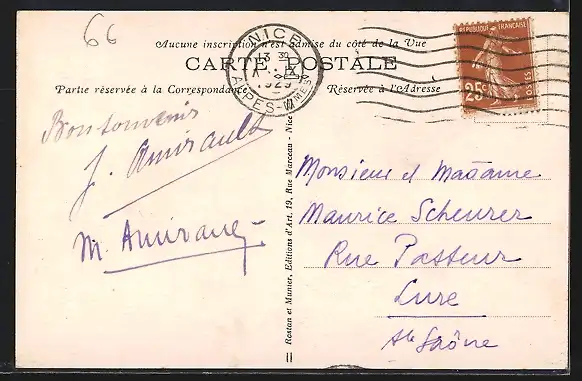 66
Aucune inscription n'est admise du côté de la Vue
CARTE POSTALE
Partie réservée à la Correspondance
Réservée à l'Adresse
NICE
1929
ALPES-MMES
RÉPUBLIQUE FRANÇAISE
25c
POSTES
Bon souvenir
J. Amirault
M. Amirault
Rostan et Munier, Editions d'Art. 19, Rue Marceau - Nice
Monsieur et Madame
Maurice Scheurer
Rue Pasteur
Lure
Hte Saône